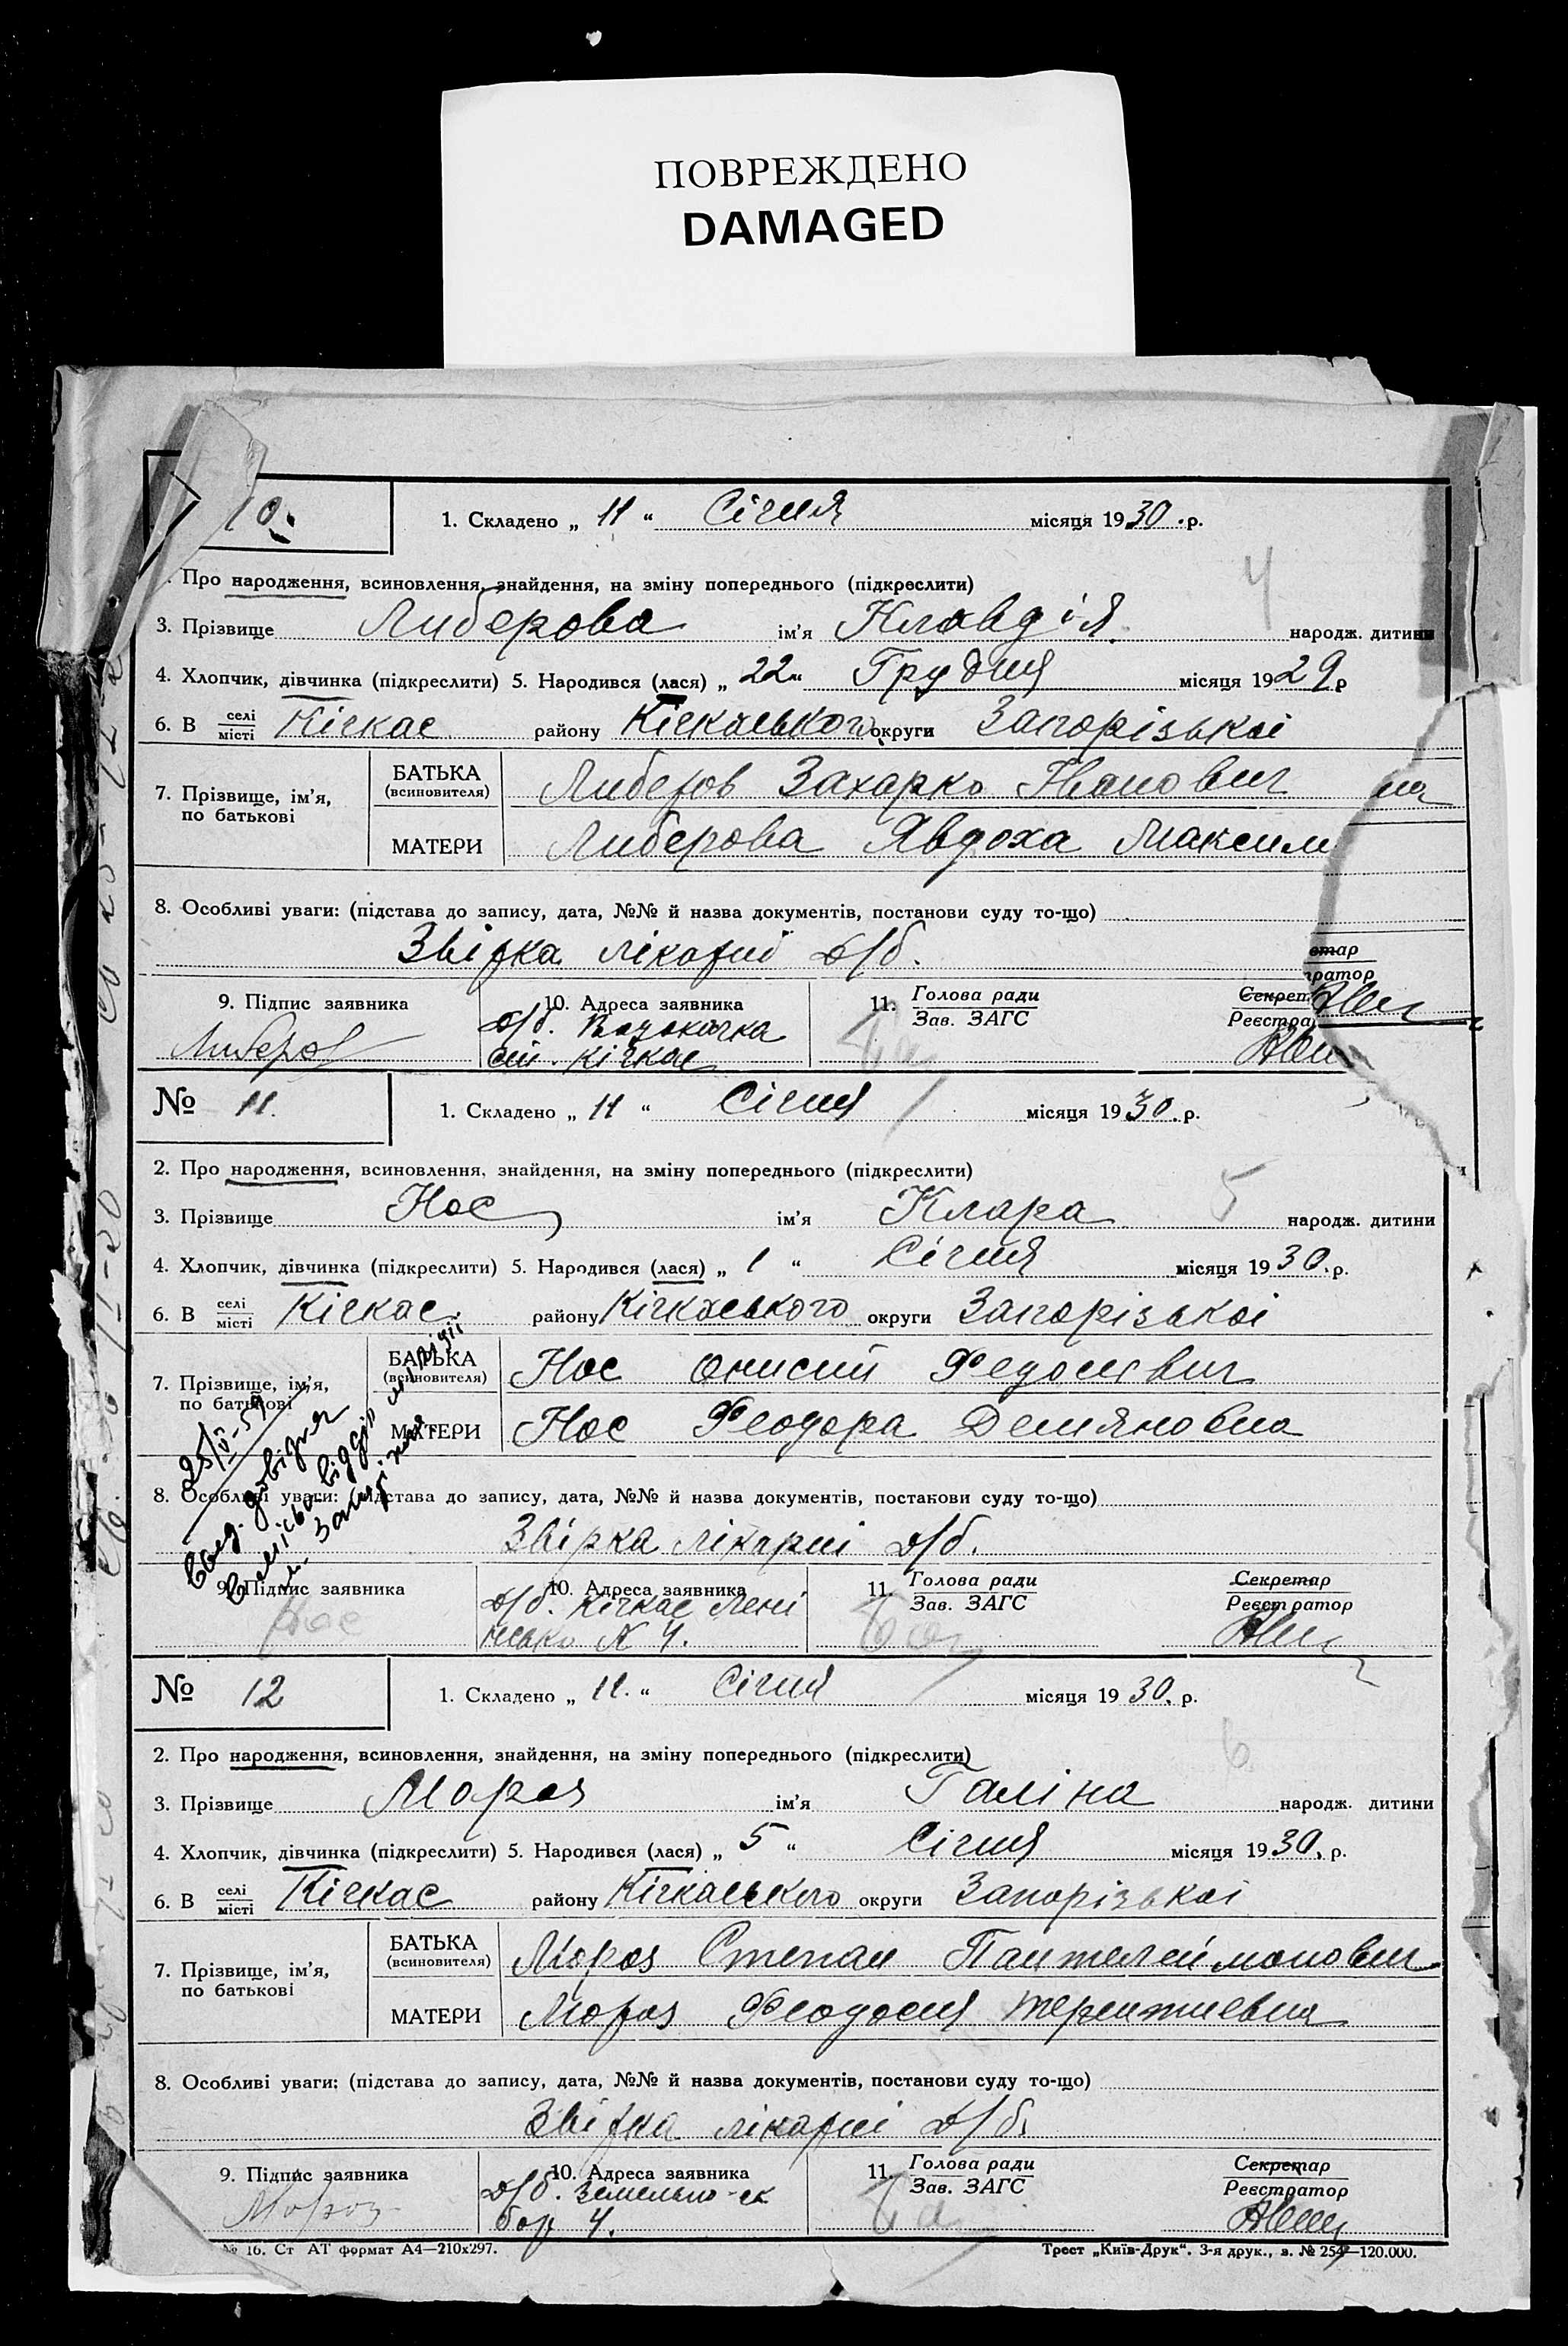 ПОВРЕЖДЕНО
DAMAGED
10.
1. Складено „ 11 “ Січня місяця 1930.р.
Про народження, всиновлення, знайдення, на зміну попереднього (підкреслити)
4
3. Прізвище Либерова ім'я Клавдія народж. дитини
4. Хлопчик, дівчинка (підкреслити) 5. Народився (лася) „ 22 “ Грудня місяця 1929 р
6. В селі місті Кічкас району Кічкаського округи Запорізькоі
7. Прізвище, ім'я, по батькові
БАТЬКА (всиновителя) Либеров Захарко Іванович
МАТЕРИ Либерова Явдоха Максим
8. Особливі уваги: (підстава до запису, дата, №№ й назва документів, постанови суду то-що)
Звірка лікарні д/б.
9. Підпис заявника 10. Адреса заявника 11. Голова ради Зав. ЗАГС
Либеров д/б. Водокачка
ст. Кічкас
№ 11. 1. Складено „ 11 “ Січня місяця 1930.р.
2. Про народження, всиновлення, знайдення, на зміну попереднього (підкреслити)
5
3. Прізвище Нос ім'я Клара народж. дитини
4. Хлопчик, дівчинка (підкреслити) 5. Народився (лася) „ 1 “ Січня місяця 1930.р.
6. В селі місті Кічкас району Кічкаського округи Запорізькоі
7. Прізвище, ім'я, по батькові
БАТЬКА (всиновителя) Нос Онисий Федосієвич
МАТЕРИ Нос Феодора Демяновна
8. Особливі уваги: (підстава до запису, дата, №№ й назва документів, постанови суду то-що)
Звірка лікарні д/б.
9. Підпис заявника 10. Адреса заявника 11. Голова ради Зав. ЗАГС Секретар Реєстратор
Нос д/б. Кічкас Лені
нсько N 4.
№ 12 1. Складено „ 11. “ Січня місяця 1930. р.
2. Про народження, всиновлення, знайдення, на зміну попереднього (підкреслити)
6
3. Прізвище Мороз ім'я Галіна народж. дитини
4. Хлопчик, дівчинка (підкреслити) 5. Народився (лася) „ 5 “ Січня місяця 1930. р.
6. В селі місті Кічкас району Кічкаського округи Запорізькоі
7. Прізвище, ім'я, по батькові
БАТЬКА (всиновителя) Мороз Степан Пантелеймонович
МАТЕРИ Мороз Феодосия Терентиевна
8. Особливі уваги: (підстава до запису, дата, №№ й назва документів, постанови суду то-що)
Звірка лікарні д/б.
9. Підпис заявника 10. Адреса заявника 11. Голова ради Зав. ЗАГС Секретар Реєстратор
Мороз д/б.
бар 4.
№ 16. Ст АТ формат А4—210х297. Трест „Київ-Друк“. 3-я друк., з. № 254—120.000.